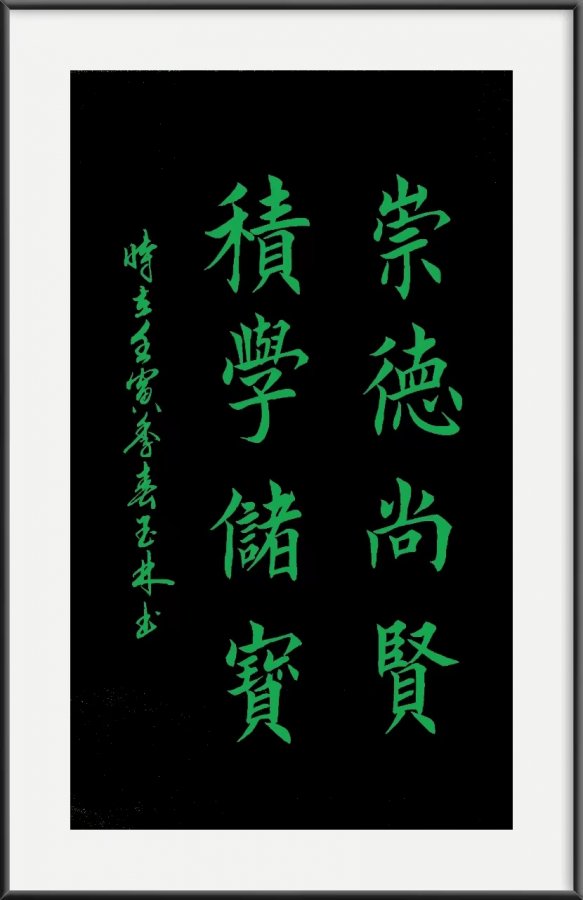 崇德尚賢
積學儲寶
時在壬寅季春玉林书